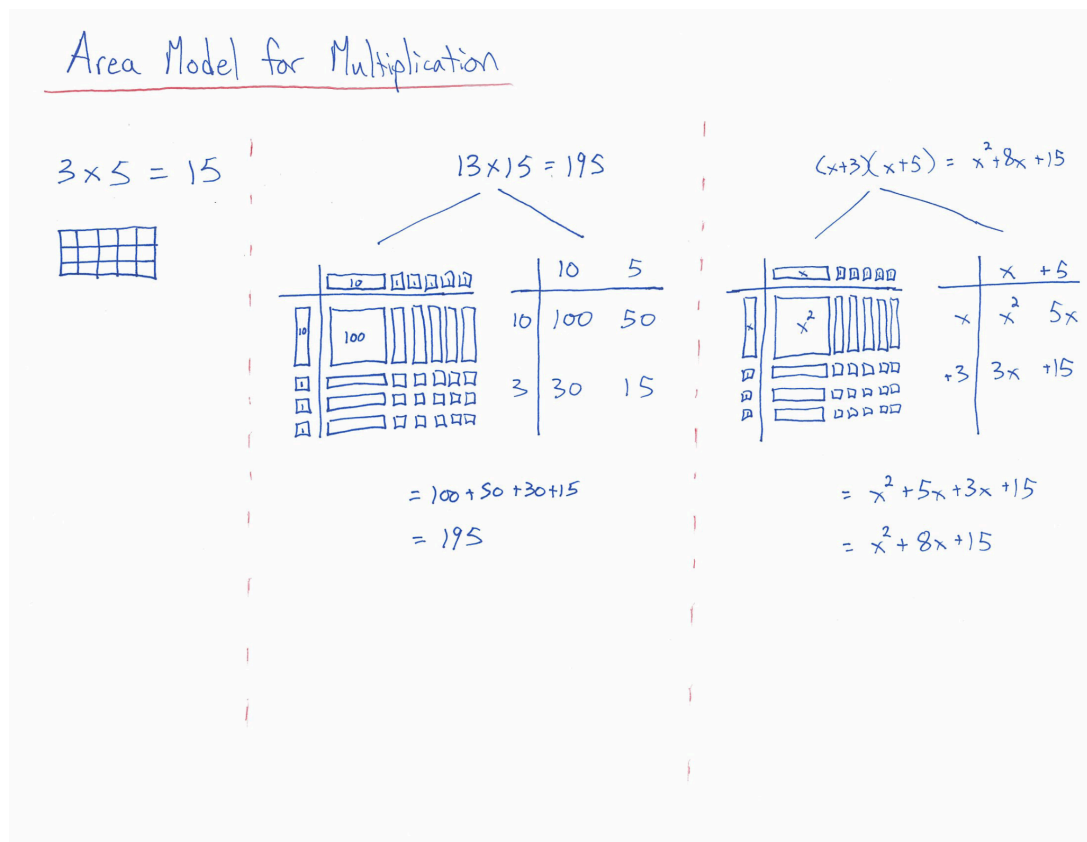 Area Model for Multiplication
3 x 5 = 15
13 x 15 = 195
10 1 1 1 1 1
10 100
1
1
1
10 5
10 100 50
3 30 15
= 100 + 50 + 30 + 15
= 195
(x+3)(x+5) = x² + 8x + 15
x 1 1 1 1 1
x x²
1
1
1
x +5
x x² 5x
+3 3x +15
= x² + 5x + 3x + 15
= x² + 8x + 15